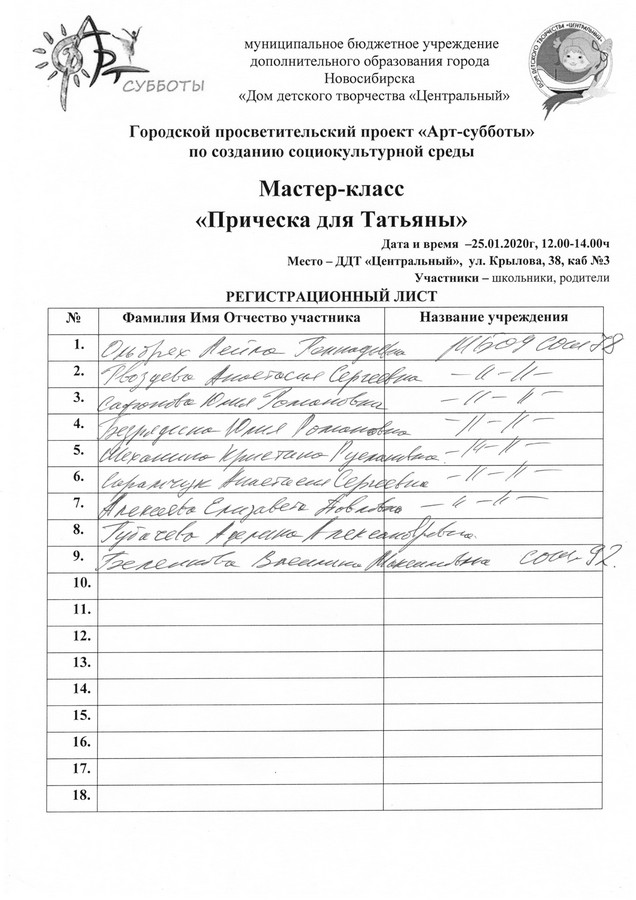 АРТ
СУББОТЫ
муниципальное бюджетное учреждение
дополнительного образования города
Новосибирска
«Дом детского творчества «Центральный»
ДОМ ДЕТСКОГО ТВОРЧЕСТВА «ЦЕНТРАЛЬНЫЙ»
Городской просветительский проект «Арт-субботы»
по созданию социокультурной среды
Мастер-класс
«Прическа для Татьяны»
Дата и время –25.01.2020г, 12.00-14.00ч
Место – ДДТ «Центральный», ул. Крылова, 38, каб №3
Участники – школьники, родители
РЕГИСТРАЦИОННЫЙ ЛИСТ
№ Фамилия Имя Отчество участника Название учреждения
1. Геннадьевна
2. Гвоздева Анастасия Сергеевна — 〃 — 〃 —
3. Сафонова Юлия Романовна — 〃 — 〃 —
4. Безрядина Юлия Романовна — 〃 — 〃 —
5. Кристина Руслановна — 〃 — 〃 —
6. Анастасия Сергеевна — 〃 — 〃 —
7. Алексеева Елизавета Павловна — 〃 — 〃 —
8. Аделина Александровна.
9. Василина Максимовна СОШ-92.
10.
11.
12.
13.
14.
15.
16.
17.
18.